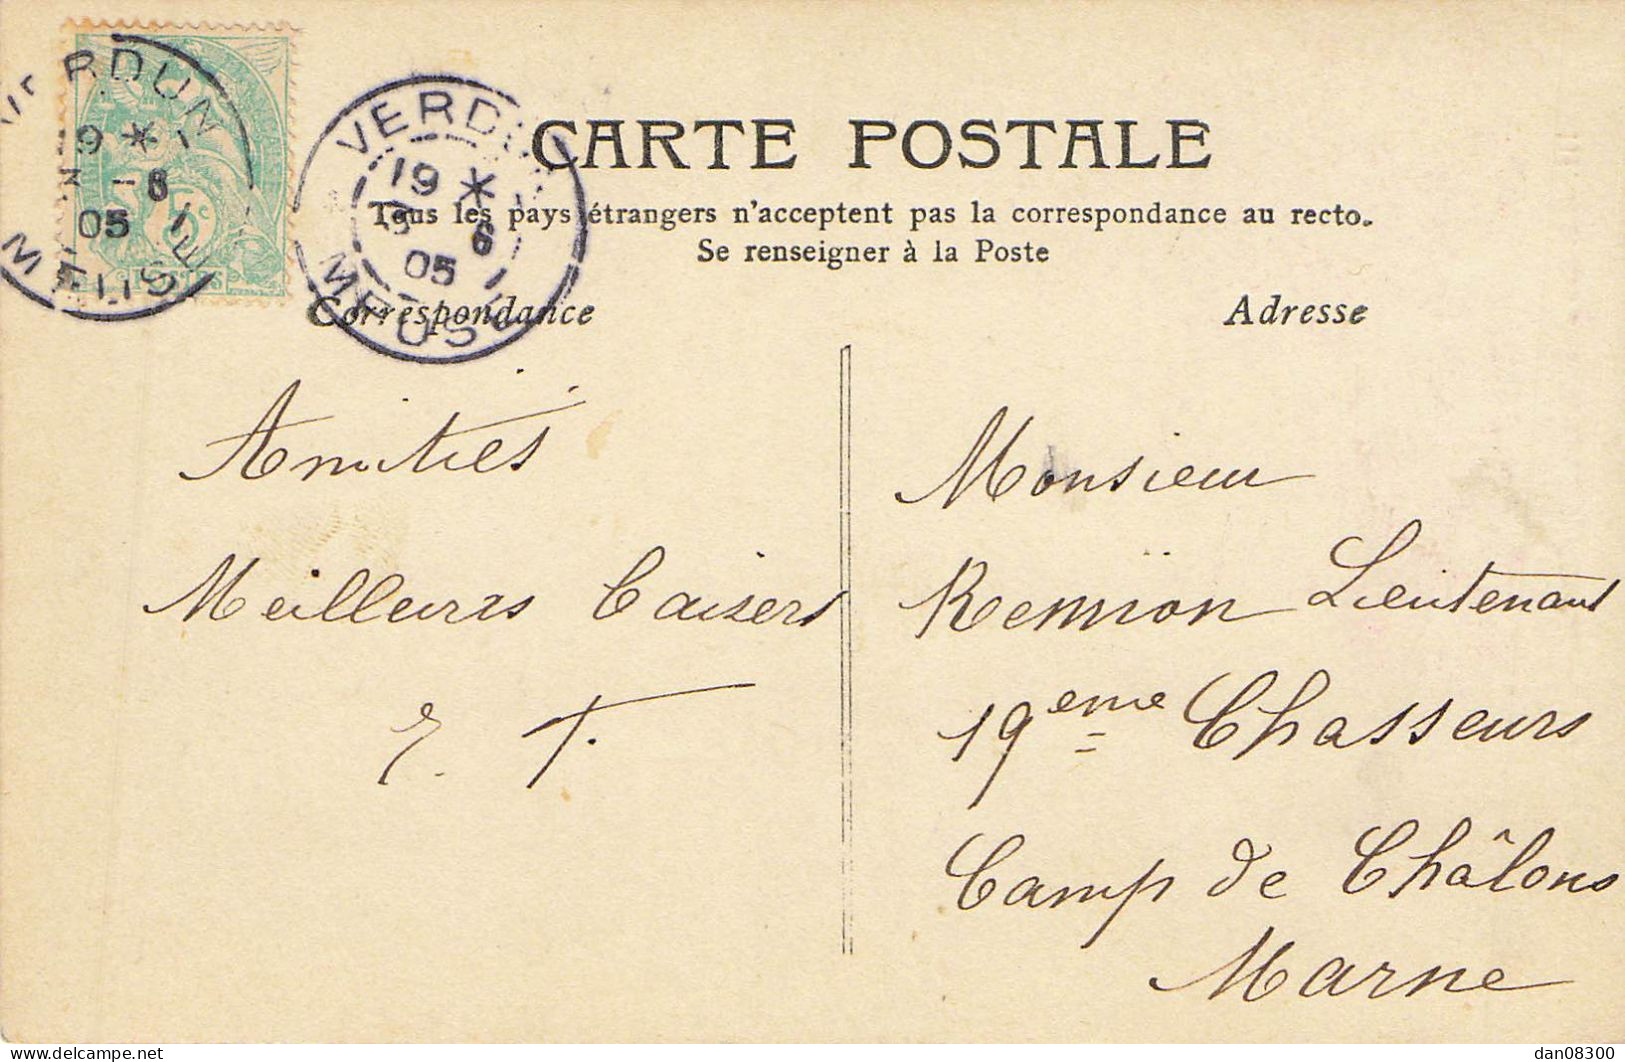 VERDUN
19 *
6
05
MEUSE
VERDUN
19 *
6
05
MEUSE
CARTE POSTALE
Tous les pays étrangers n'acceptent pas la correspondance au recto.
Se renseigner à la Poste
Correspondance
Adresse
Amitiés
Meilleures Caisers
E. T.
Monsieur
Remion Lieutenant
19eme Chasseurs
Camp de Châlons
Marne
dan08300